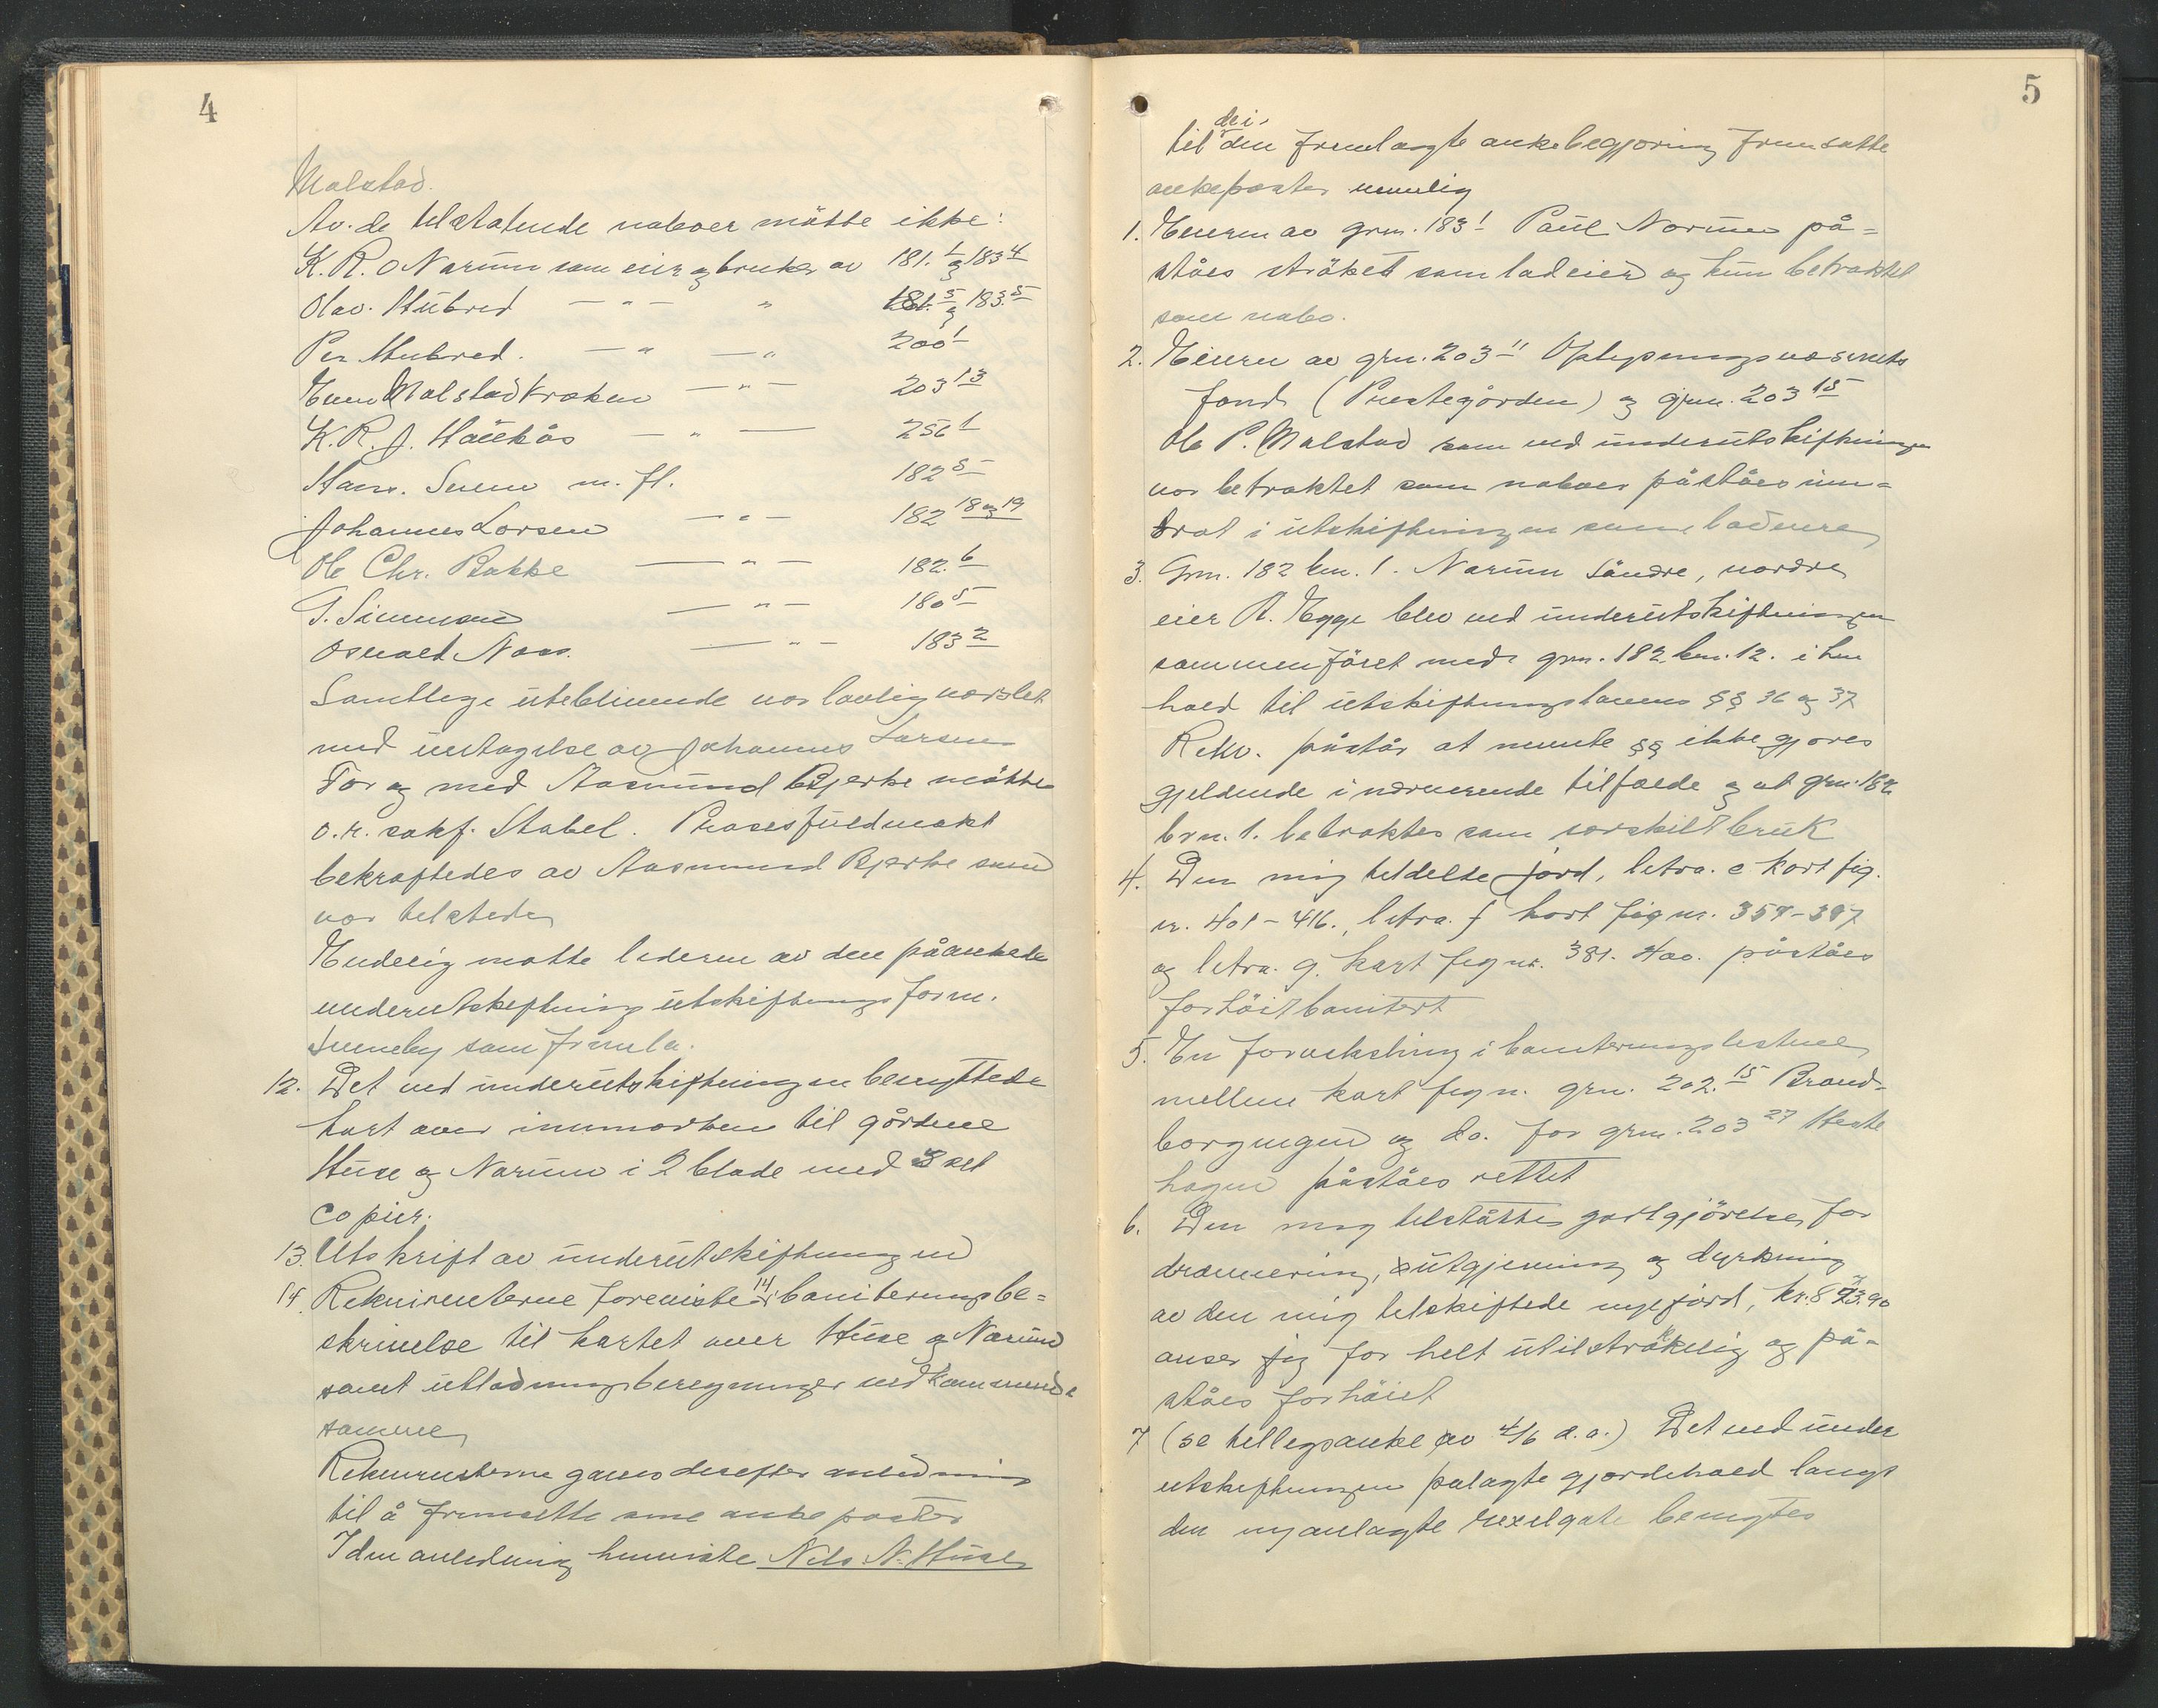 4
Malstad.
Av. de tilstøtende naboer møtte ikke:
K. R. O Narum som eier og bruker av 181.1 og 183 4
Olav. Hubred — " — " 181. 5 og 183. 5
Per Hubred. — " — " 200 1
Even Malstadkroken — " — 203 13
K. R. J. Haukås — " — 256 1
Hans. Svenn m. fl. 182 5
Johannes Larsen — " — 182 18 og 19
Ole Chr. Bakke — " — 182. 6
T. Simensen — " — 180 5
Osvald Naas. — " — 183 2
Samtlige uteblivende var lovlig varslet
med undtagelse av Johannes Larsen
For og med Aasmund Bjerke møtte
o.r. sakf. Stabel. Prosesfuldmakt
bekræftedes av Aasmund Bjerke som
var tilstede
Endelig møtte lederen av den påankede
underutskiftning utskiftningsform.
Sunneby som fremla.
12. Det ved underutskiftningen benyttede
kart over innmarken til gårdene
Huse og Narum i 2 blade med 3 set
copier.
13. Utskrift av underutskiftningen
14. Rekvirenterne foreviste 14 boniteringsbe=
skrivelse til kartet over Huse og Narum
samt utlodningsberegninger vedkommende
samme
Rekvirenterne gaves derefter anledning
til å fremsette sine ankeposter
I den anledning henviste Nils N. Huse
5
til de i den fremlagte ankebegjæring fremsatte
ankeposter nemlig
1. Eieren av grn. 183 1 Paul Narum på=
ståes strøket som lodeier og kun betraktet
som nabo.
2. Eieren av grn. 203 11 Oplysningsvæsenets
fond (Prestegården) og grn. 203 15
Ole P. Malstad som ved underutskiftningen
var betraktet som naboer påståes inn=
drat i utskiftningen som lodeiere
3. Grn. 182 brn. 1. Narum søndre, nordre
eier A. Egge blev ved underutskiftningen
sammenføiet med grn. 182 brn. 12. i hen
hold til utskiftningslovens §§ 36 og 37
Rekv. påstår at nevnte §§ ikke gjøres
gjeldende i nærværende tilfælde og at grn. 182
brn. 1. betraktes som særskilt bruk
4. Den mig tildelte jord, letra. c kart fig.
nr. 401 - 416., letra. f kart fig nr. 359 - 397
og letra. g. kart fig nr. 381. 400. påståes
for høit bonitert
5. En forveksling i boniteringslistene
mellem kart fig n. grn. 202. 15 Brand=
borgengen og do. for grn. 203 27 Heste
hagen påståes rettet
6. Den mig tilståtte godtgjørelse for
drænering, utgjevning og dyrkning
av den mig tilskiftede nye jord, kr. 873.90
anser jeg for helt utilstrækkelig og på=
ståes forhøiet
7 (se tillegsanke av 4/6 d. a.) Det ved under
utskiftningen pålagte gjærdehold langs
den nyanlagte rexelgate benyttes